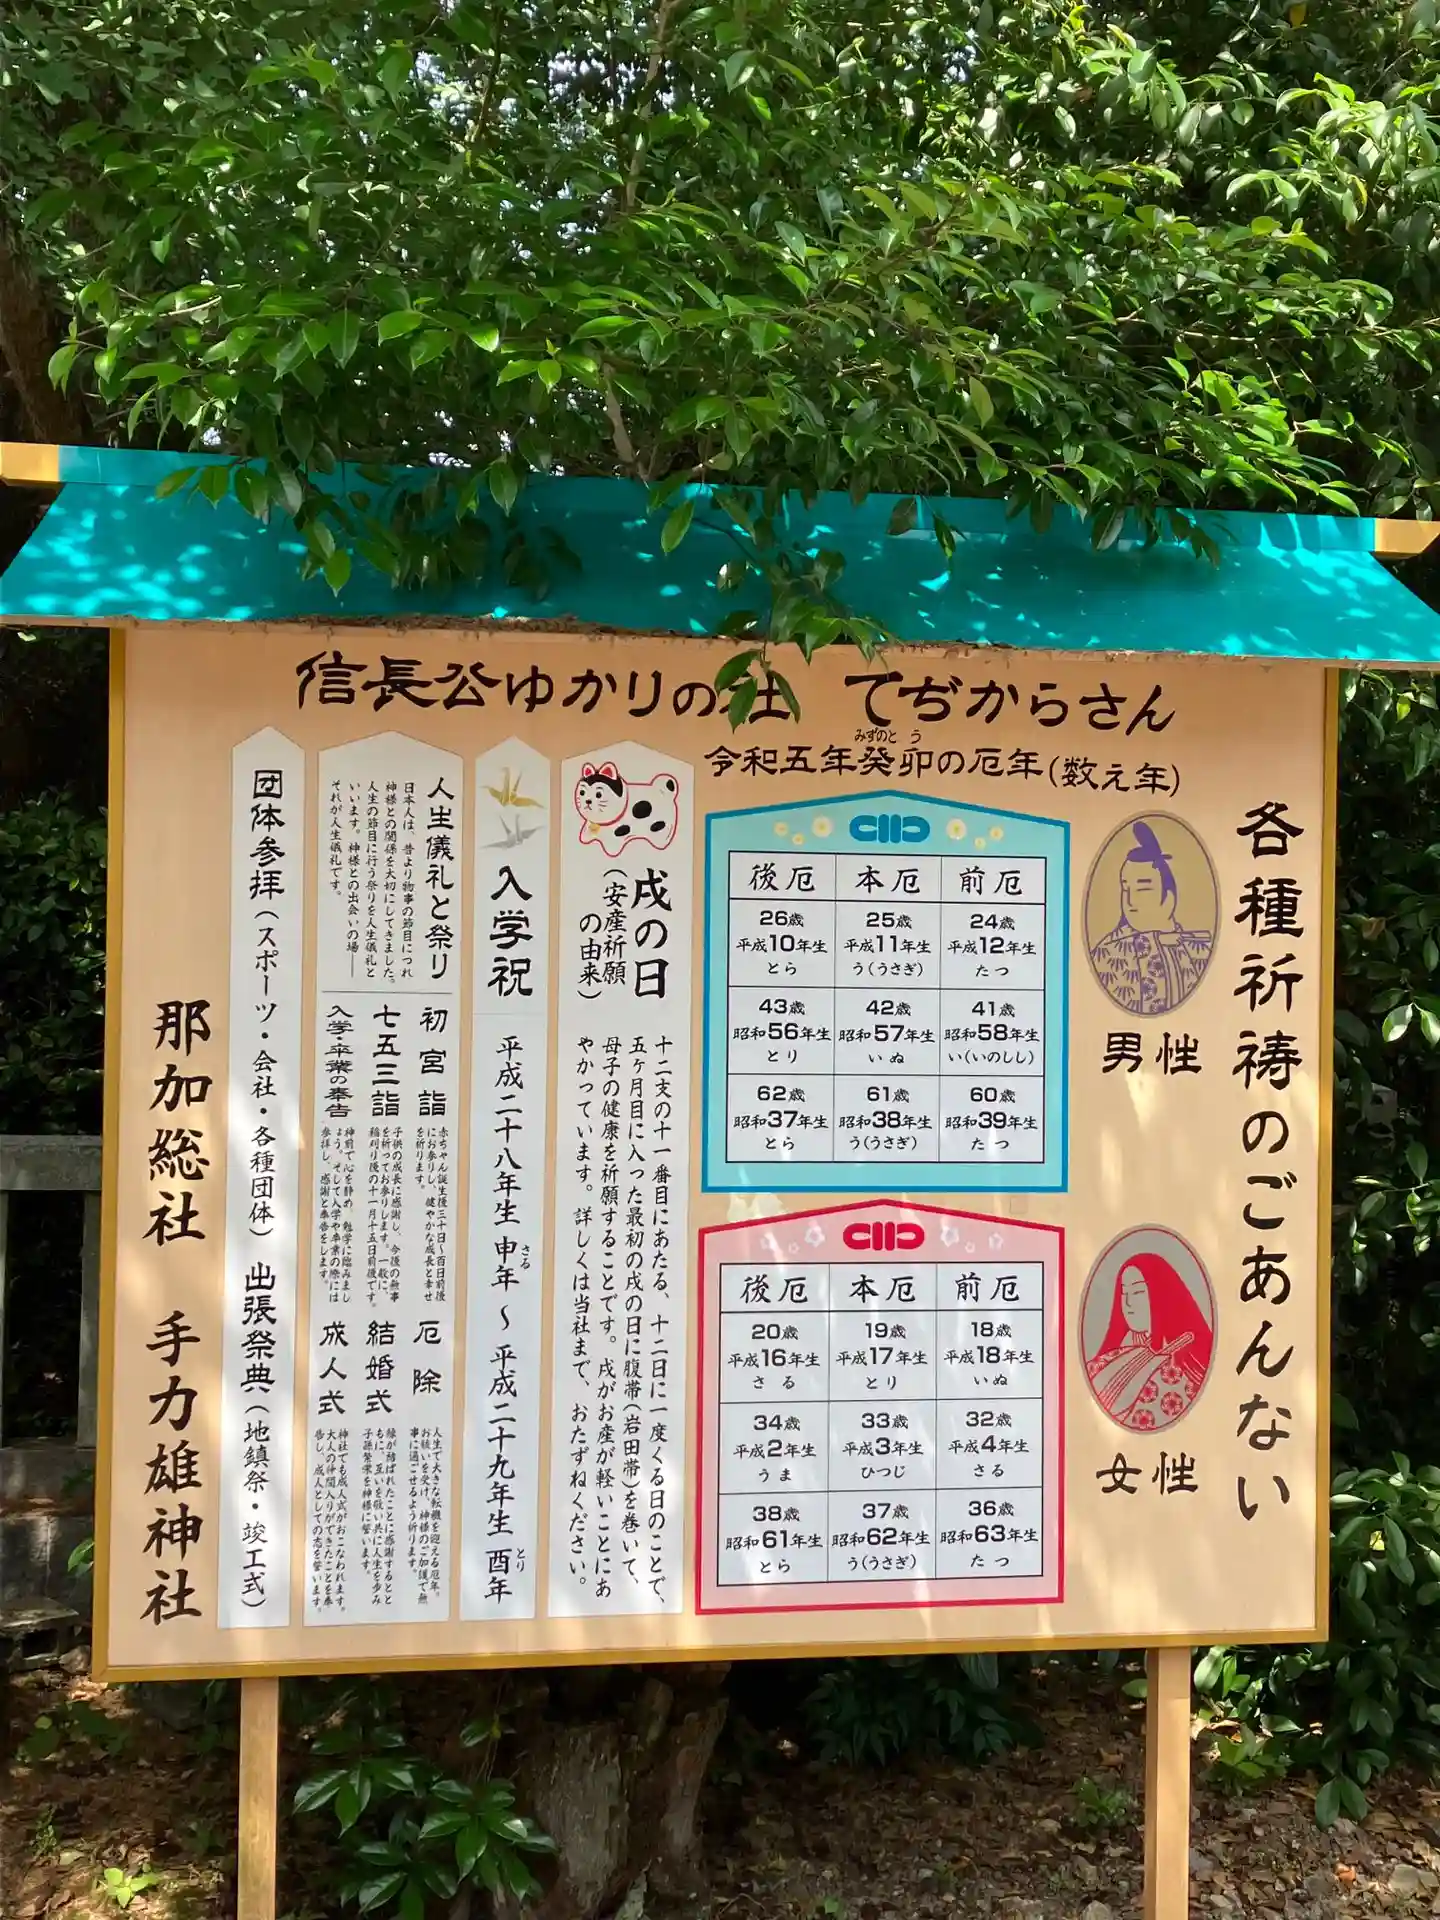 信長公ゆかりの社 てぢからさん
各種祈祷のごあんない
令和五年癸卯の厄年(数え年)
みずのと う
男性
後厄 本厄 前厄
26歳 25歳 24歳
平成10年生 平成11年生 平成12年生
とら う(うさぎ) たつ
43歳 42歳 41歳
昭和56年生 昭和57年生 昭和58年生
とり いぬ い(いのしし)
62歳 61歳 60歳
昭和37年生 昭和38年生 昭和39年生
とら う(うさぎ) たつ
女性
後厄 本厄 前厄
20歳 19歳 18歳
平成16年生 平成17年生 平成18年生
さる とり いぬ
34歳 33歳 32歳
平成2年生 平成3年生 平成4年生
うま ひつじ さる
38歳 37歳 36歳
昭和61年生 昭和62年生 昭和63年生
とら う(うさぎ) たつ
戌の日
(安産祈願
の由来)
十二支の十一番目にあたる、十二日に一度くる日のことで、
五ヶ月目に入った最初の戌の日に腹帯(岩田帯)を巻いて、
母子の健康を祈願することです。戌がお産が軽いことにあ
やかっています。詳しくは当社まで、おたずねください。
入学祝
平成二十八年生 申年 〜 平成二十九年生 酉年
さる
とり
人生儀礼と祭り
日本人は、昔より物事の節目につれ
神様との関係を大切にしてきました。
人生の節目に行う祭りを人生儀礼と
いいます。神様との出会いの場──
それが人生儀礼です。
初宮詣
赤ちゃん誕生後三十日〜百日前後
にお参りし、健やかな成長と幸せ
を祈ります。
七五三詣
子供の成長に感謝し、今後の無事
を祈ってお参りします。一般に、
稲刈り後の十一月十五日前後です。
入学・卒業の奉告
神前で心を静め、勉学に臨みまし
ょう。そして入学や卒業の際には
参拝し、感謝と奉告をします。
厄除
人生で大きな転機を迎える厄年。
お祓いを受け、神様のご加護で無
事に過ごせるよう祈ります。
結婚式
縁が結ばれたことに感謝するとと
もに、互いを敬い共に人生を歩み
子孫繁栄を神様に誓います。
成人式
神社でも成人式がおこなわれます。
大人の仲間入りができたことを奉
告し、成人としての志を誓います。
団体参拝(スポーツ・会社・各種団体) 出張祭典(地鎮祭・竣工式)
那加総社 手力雄神社